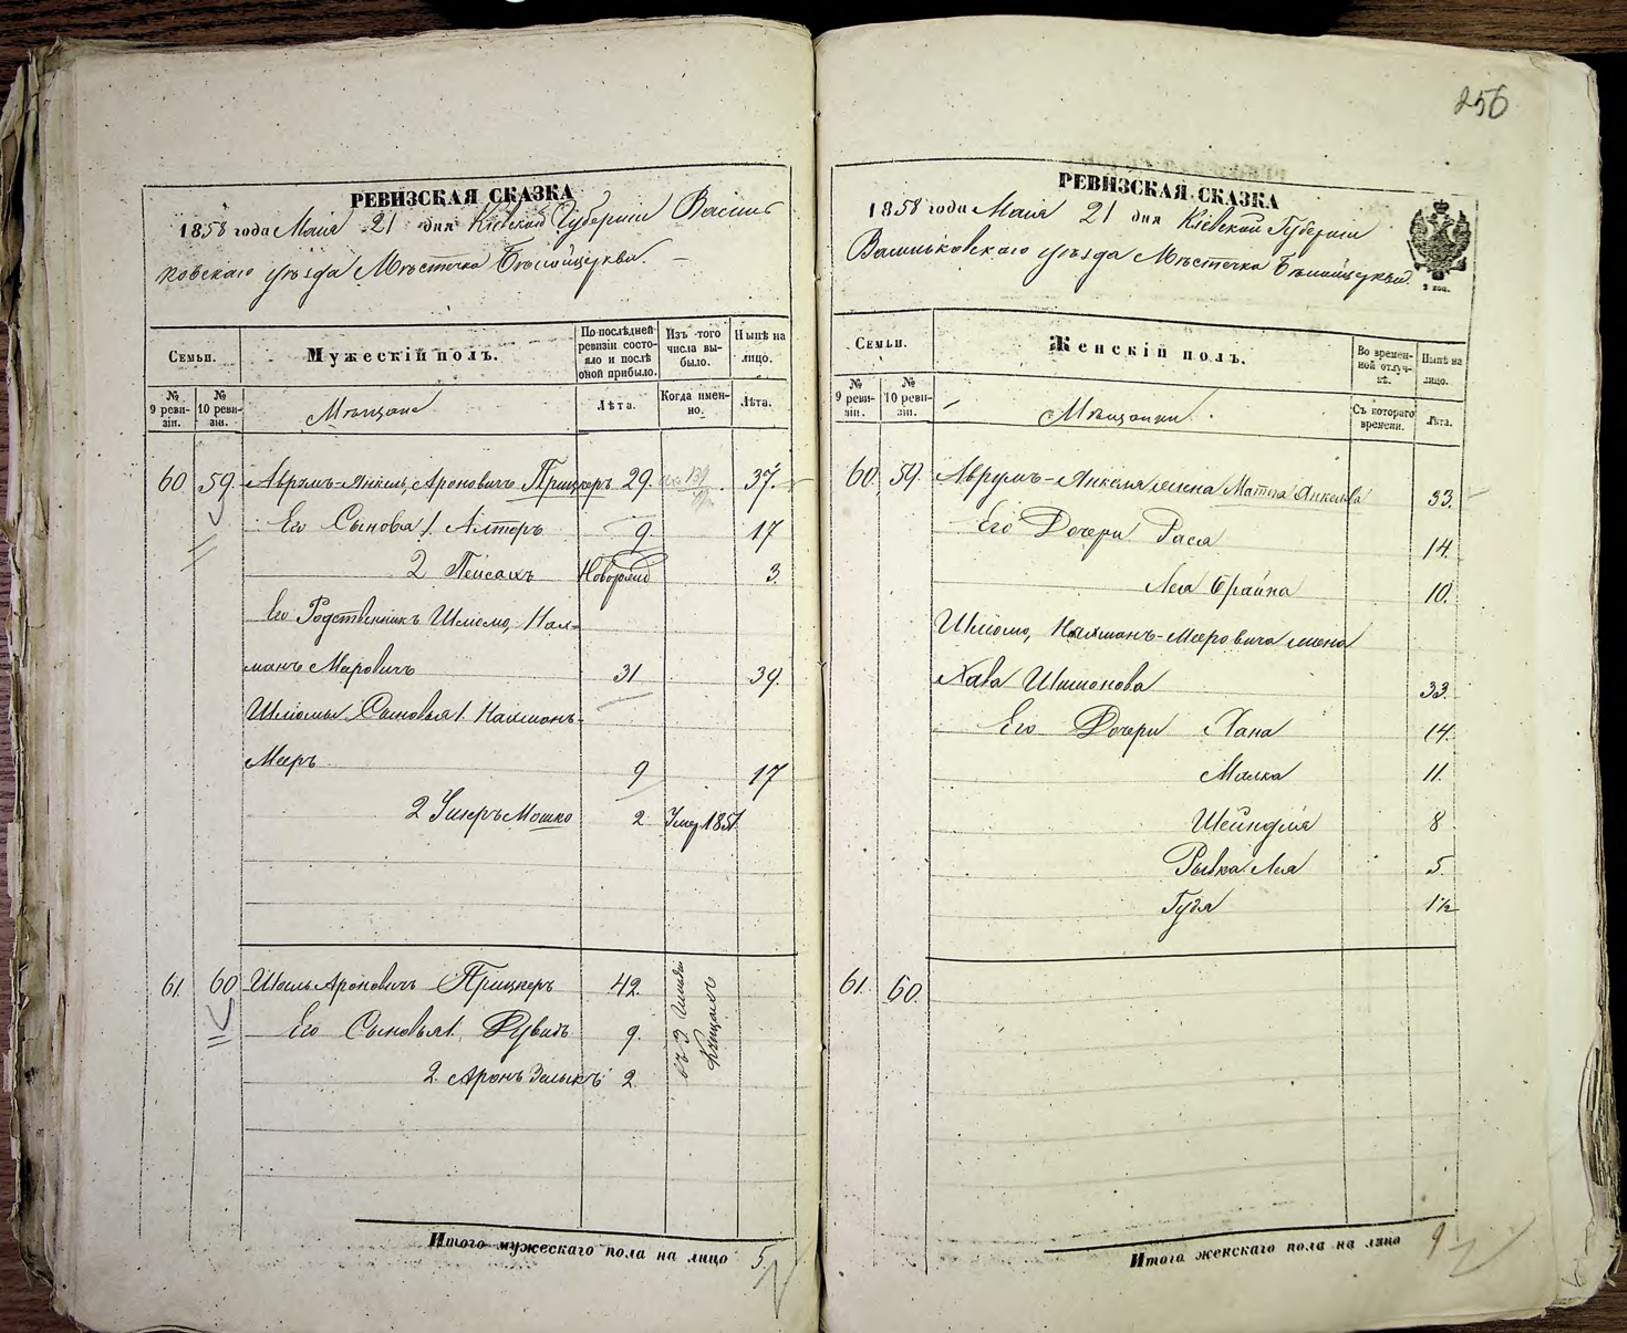 256
РЕВИЗСКАЯ СКАЗКА
1858 года Маія 21 дня Кіевской Губерніи Василь
ковскаго уѣзда Мѣстечка Бѣлойцеркви.
Семьи.
Мужескій полъ.
По последней ревизіи состояло и послѣ оной прибыло.
Изъ того числа выбыло.
Нынѣ на лицо.
№ 9 ревизіи.
№ 10 ревизіи.
Мѣщане
Лѣта.
Когда именно.
Лѣта.
60 59. Аврумъ-Янкель, Ароновичъ Прицкеръ 29. 37.
Его Сыновья 1. Алтеръ 9. 17
2 Пейсахъ Новорожд 3.
Его Родственникъ Шлiомо, Нах-
манъ Меровичъ 31 39.
Шлiомы Сыновья 1. Нахманъ-
Меръ 9 17
2 Мошко 2 Умер 1851
61. 60 Ароновичъ Прицкеръ 42.
Его Сыновья 1. Рувинъ 9.
2. Аронъ Зелыкъ 2.
въ 3
Итого мужескаго пола на лицо 5.
РЕВИЗСКАЯ СКАЗКА
1858 года Маія 21 дня Кіевской Губерніи
Васильковскаго уѣзда Мѣстечка Бѣлойцеркви.
2 коп.
Семьи.
Женскій полъ.
Во временной отлучкѣ.
Нынѣ на лицо.
№ 9 ревизіи.
№ 10 ревизіи.
Мѣщанки
Съ котораго времени.
Лѣта.
60. 59. Аврумъ-Янкеля жена Янкелева 33.
Его Дочери Рася 14.
Лея Брайна 10.
Шлiомо, Нахманъ-Меровича жена
Хава Шимонова 33.
Его Дочери Хана 14.
Малка 11.
Шейндля 8
Рывка Лея 5.
Гудя 1½
61. 60.
Итого женскаго пола на лицо 9